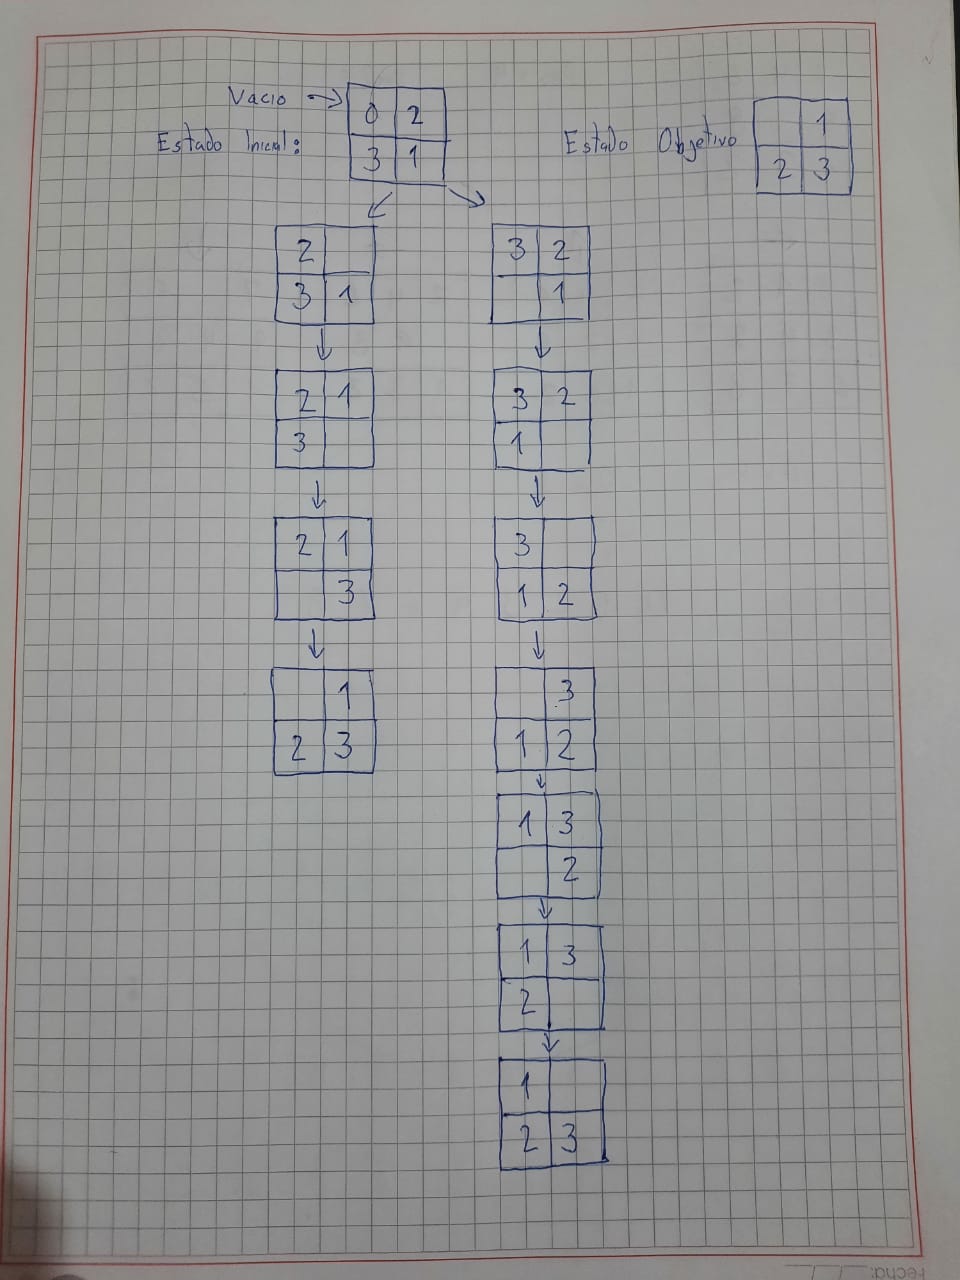 Vacio → 0 2
Estado Inicial: 3 1
Estado Objetivo 1
2 3
2
3 1
3 2
1
2 1
3
3 2
1
2 1
3
3
1 2
1
2 3
3
1 2
1 3
2
1 3
2
1
2 3
fecha: / /